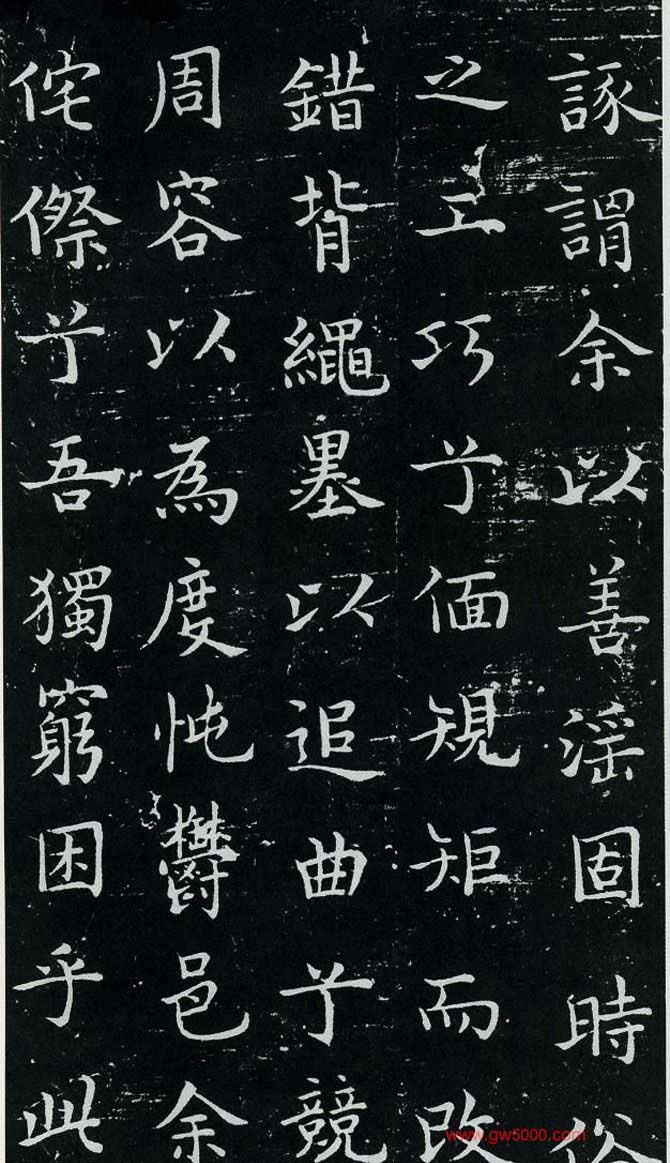 諑謂余以善滛固時俗
之工巧兮偭規矩而改
錯背繩墨以追曲兮競
周容以為度忳鬱邑余
侘傺兮吾獨窮困乎此
www.gw5000.com